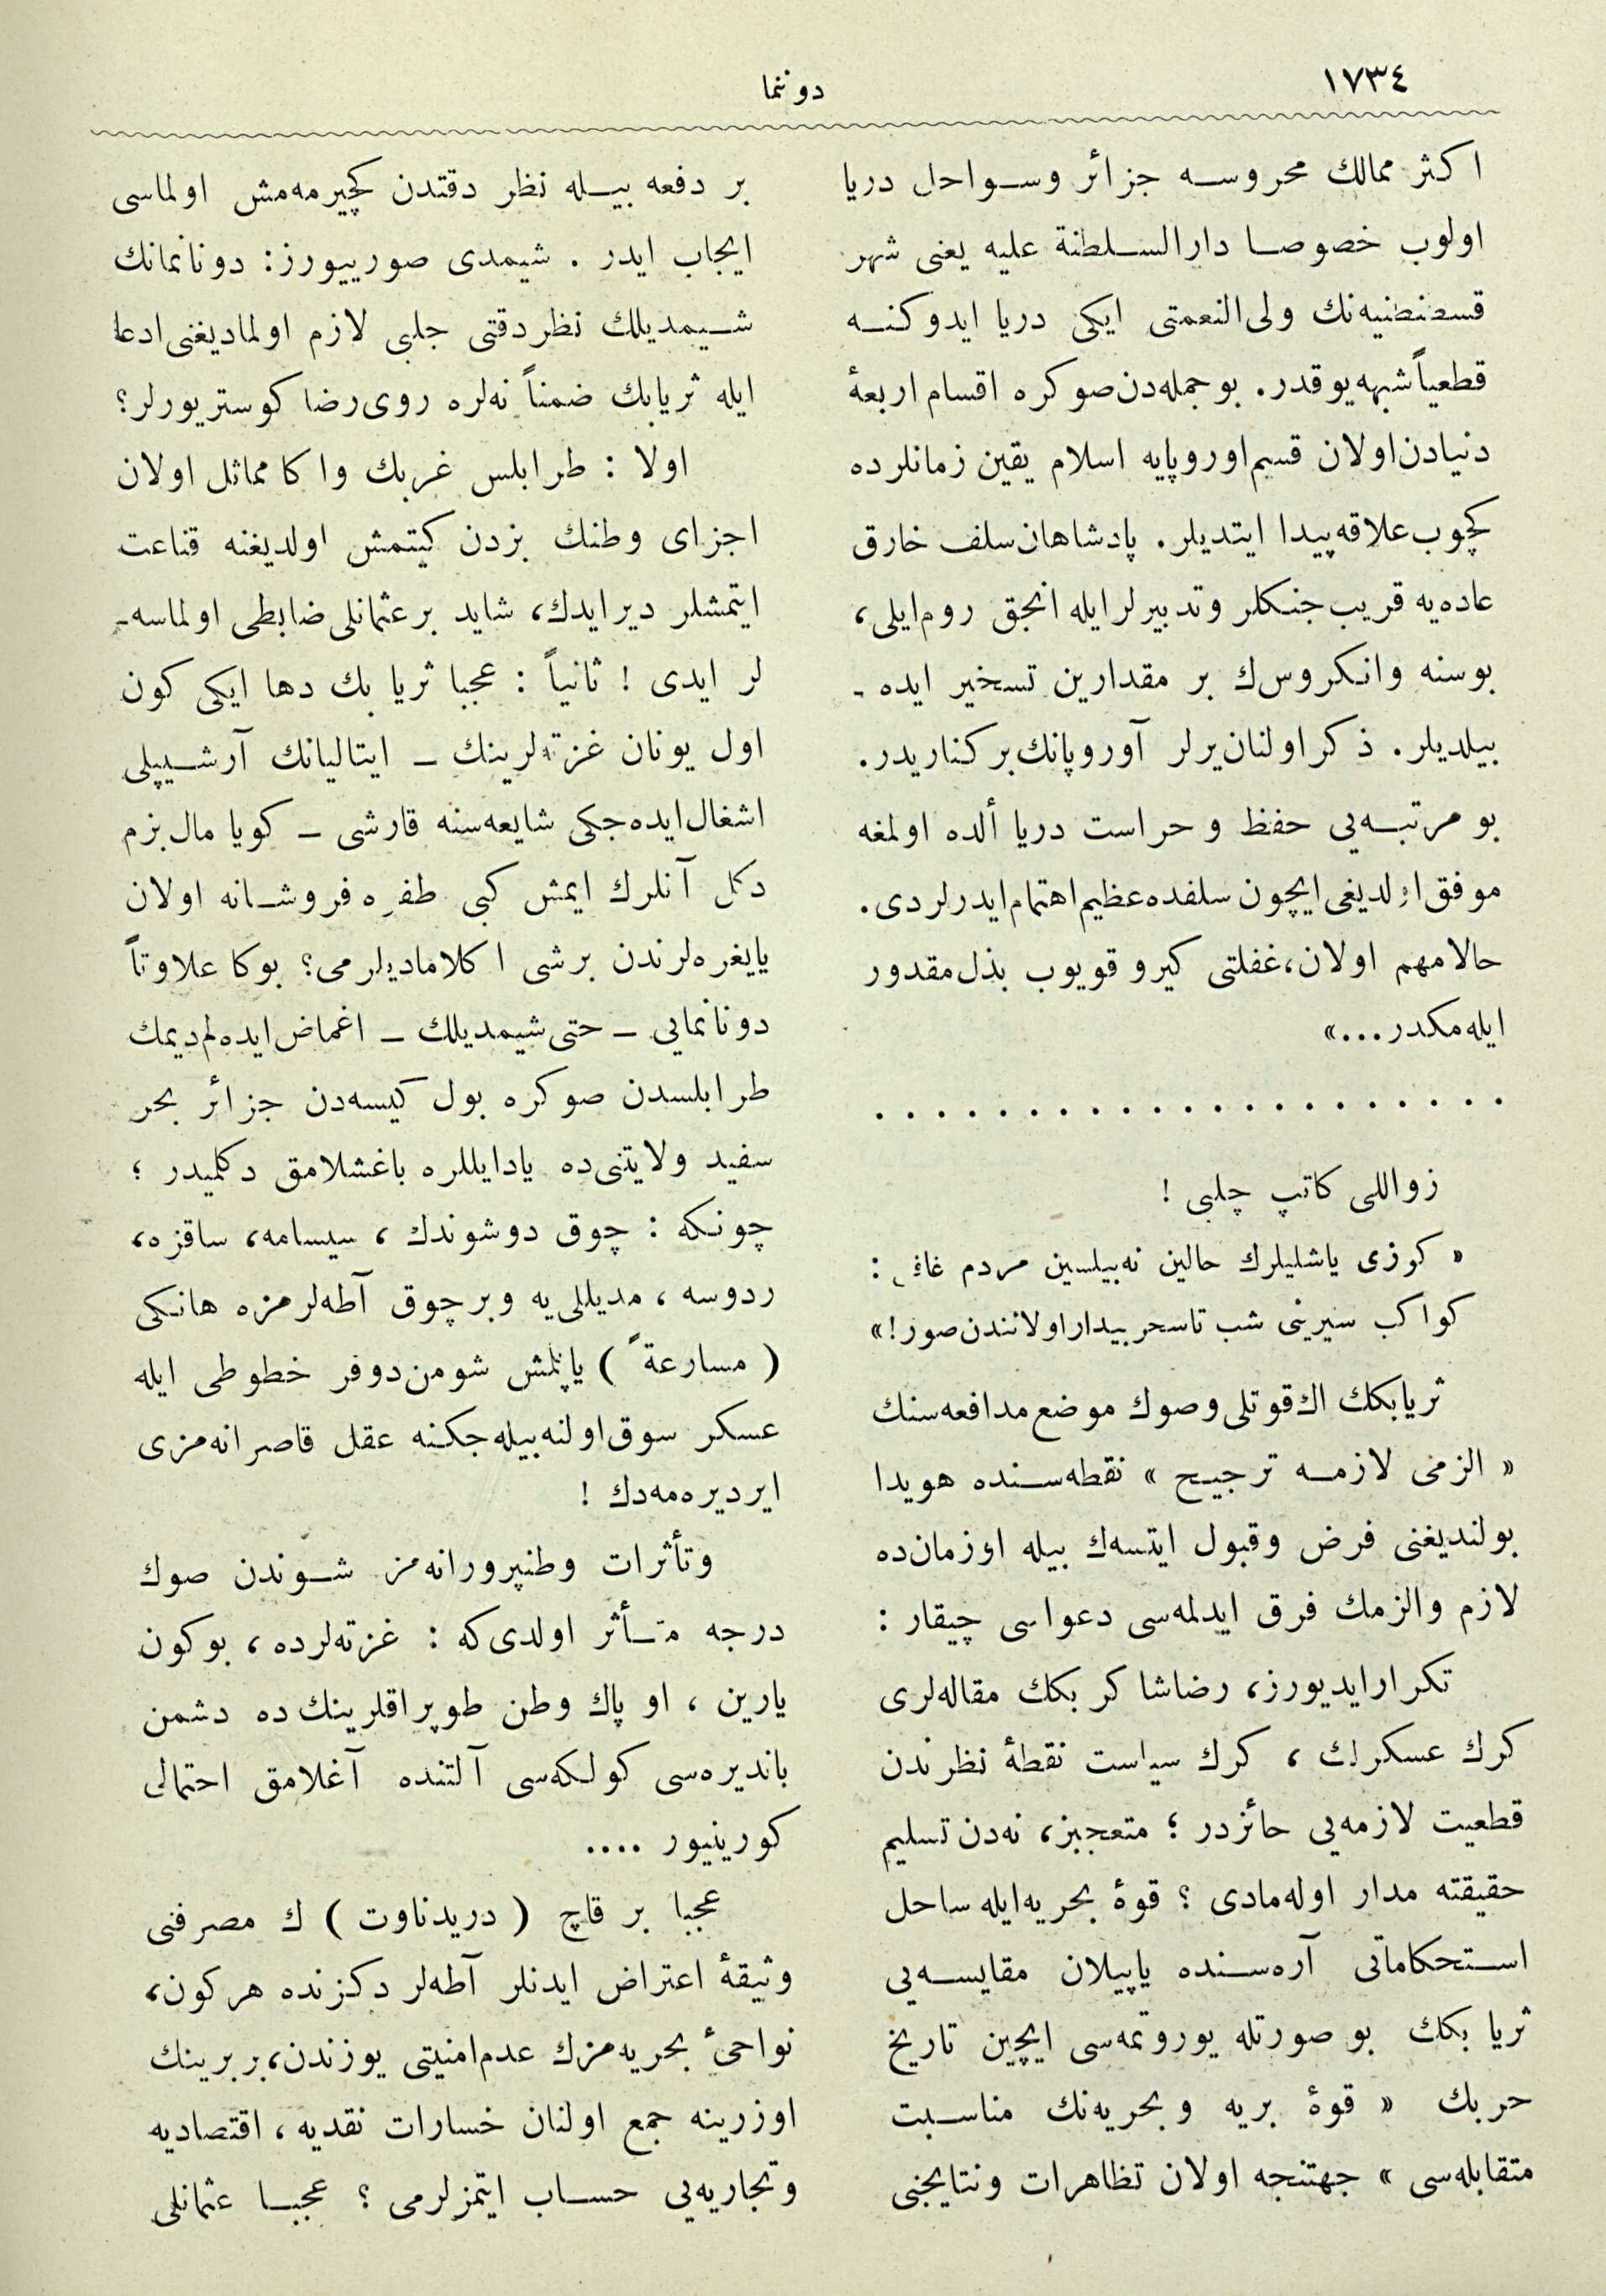 ١٧٣٤
دوننما
اكثر ممالك محروسه جزائر وسواحل دريا
اولوب خصوصا دارالسلطنهٔ عليه يعنى شهر
قسطنطنيه‌نك ولى‌النعمتى ايكى دريا ايدوكنه
قطعياً شبهه يوقدر. بوجمله‌دن صوكره اقسام اربعهٔ
دنيادن اولان قسم اوروپايه اسلام يقين زمانلرده
كچوب علاقه پيدا ايتديلر. پادشاهان سلف خارق
عاده‌يه قريب جنكلر وتدبيرلر ايله انجق روم‌ايلى،
بوسنه وانكروس‌ك بر مقدارين تسخير ايده ـ
بيلديلر. ذكر اولنان يرلر آوروپانك بر كناريدر.
بو مرتبه‌يى حفظ و حراست دريا ألده اولمغه
موفق اولديغى ايچون سلفده عظيم اهتمام ايدرلردى.
حالا مهم اولان، غفلتى كيرو قويوب بذل مقدور
ايله‌مكدر...»
. . . . . . . . . . . . . . . . . . . .
زواللى كاتب چلبى !
« كوزى ياشليلرك حالين نه‌بيلسين مردم غافل :
كواكب سيرينى شب تاسحر بيدار اولاندن صور!»
ثريابكك اك قوتلى وصوك موضع مدافعه‌سنك
« الزمى لازمه ترجيح » نقطه‌سنده هويدا
بولنديغنى فرض وقبول ايتسه‌ك بيله اوزمان‌ده
لازم والزمك فرق ايدلمه‌سى دعواسى چيقار :
تكرار ايديورز، رضاشاكر بكك مقاله‌لرى
كرك عسكرلك ، كرك سياست نقطهٔ نظرندن
قطعيت لازمه‌يى حائزدر ؛ متعجبز، نه‌دن تسليم
حقيقته مدار اوله‌مادى ؟ قوهٔ بحريه‌ايله ساحل
استحكاماتى آره‌سنده ياپيلان مقايسه‌يى
ثريا بكك بو صورتله يوروتمه‌سى ايچين تاريخ
حربك « قوهٔ بريه و بحريه‌نك مناسبت
متقابله‌سى » جهتنجه اولان تظاهرات ونتايجنى
بر دفعه بيله نظر دقتدن كچيرمه‌مش اولماسى
ايجاب ايدر . شيمدى صورييورز: دونانمانك
شيمديلك نظر دقتى جلبى لازم اولماديغنى ادعا
ايله ثريابك ضمناً نه‌لره روى رضا كوستريورلر؟
اولا : طرابلس غربك واكا مماثل اولان
اجزاى وطنك بزدن كيتمش اولديغنه قناعت
ايتمشلر دير ايدك، شايد بر عثمانلى ضابطى اولماسه‌ـ
لر ايدى ! ثانياً : عجبا ثريا بك دها ايكى كون
اول يونان غزته‌لرينك ـ ايتاليانك آرشيپلى
اشغال ايده‌جكى شايعه‌سنه قارشى ـ كويا مال بزم
دكل آنلرك ايمش كبى طفره فروشانه اولان
يايغره‌لرندن برشى اكلاماديلرمى؟ بوكا علاوتاً
دونانمايى ـ حتى شيمديلك ـ اغماض ايده‌لم ديمك
طرابلسدن صوكره بول كيسه‌دن جزائر بحر
سفيد ولايتنى‌ده يادايللره باغشلامق دكلميدر ؛
چونكه : چوق دوشوندك ، سيسامه، ساقزه،
ردوسه ، مديللى‌يه وبر چوق آطه‌لرمزه هانكى
( مسارعةً ) ياپلمش شومن‌دوفر خطوطى ايله
عسكر سوق اولنه‌بيله‌جكنه عقل قاصرانه‌مزى
ايرديره‌مه‌دك !
وتأثرات وطنپرورانه‌مز شوندن صوك
درجه متأثر اولدى‌كه : غزته‌لرده ، بوكون
يارين ، او پاك وطن طوپراقلرينك ده دشمن
بانديره‌سى كولكه‌سى آلتنده آغلامق احتمالى
كورينيور ....
عجبا بر قاچ ( دريدناوت ) ك مصرفنى
وثيقهٔ اعتراض ايدنلر آطه‌لر دكزنده هركون،
نواحىٔ بحريه‌مزك عدم امنيتى يوزندن، بربرينك
اوزرينه جمع اولنان خسارات نقديه ، اقتصاديه
وتجاريه‌يى حساب ايتمزلرمى ؟ عجبا عثمانلى